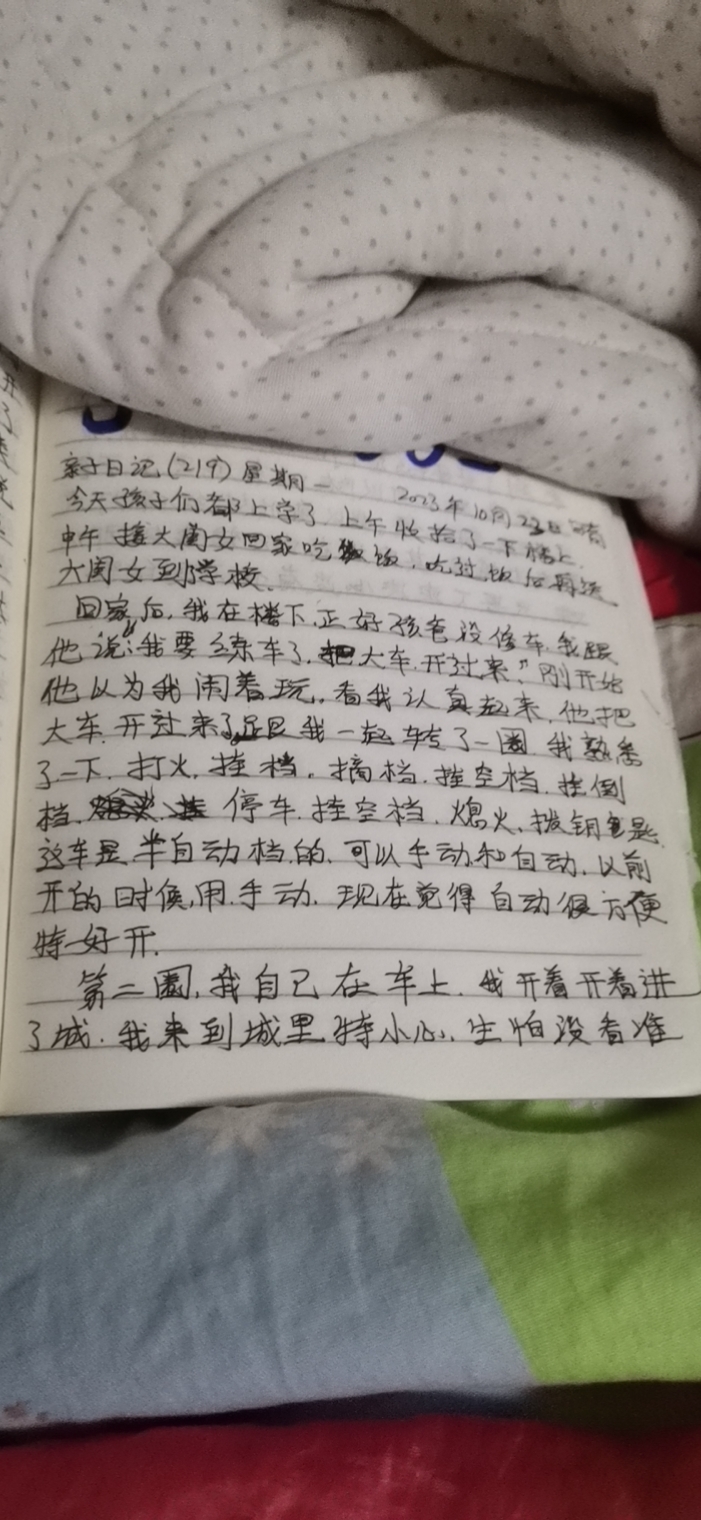 亲子日记(219) 星期一
2023年10月23日 晴
今天孩子们都上学了.上午收拾了一下楼上.
中午接大闺女回家吃饭,吃过饭后再送
大闺女到学校.
回家后,我在楼下,正好孩爸没修车,我跟
他说:"我要练车了,把大车开过来."刚开始
他以为我闹着玩.看我认真起来,他把
大车开过来了,跟我一起转了一圈.我熟悉
了一下.打火.挂档.摘档.挂空档.挂倒
档.停车.挂空档.熄火.拨钥匙.
这车是半自动档的.可以手动和自动.以前
开的时候,用手动.现在觉得自动很方便
特好开.
第二圈,我自己在车上.我开着开着进
了城.我来到城里特小心.生怕没看准